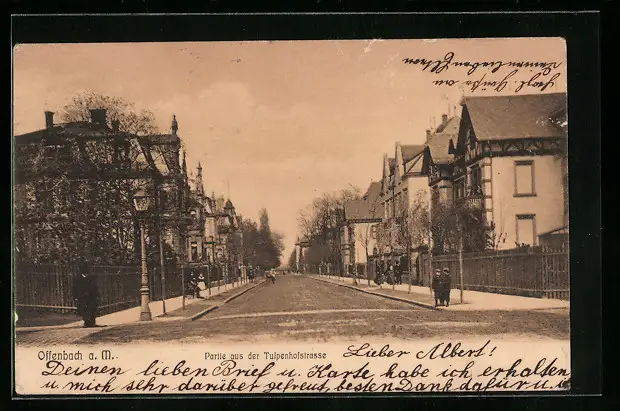 Offenbach a. M..
Partie aus der Tulpenhofstrasse
Lieber Albert!
Deinen lieben Brief u. Karte habe ich erhalten
u. mich sehr darüber gefreut, besten Dank dafür u. u.
Herzl. Grüße an